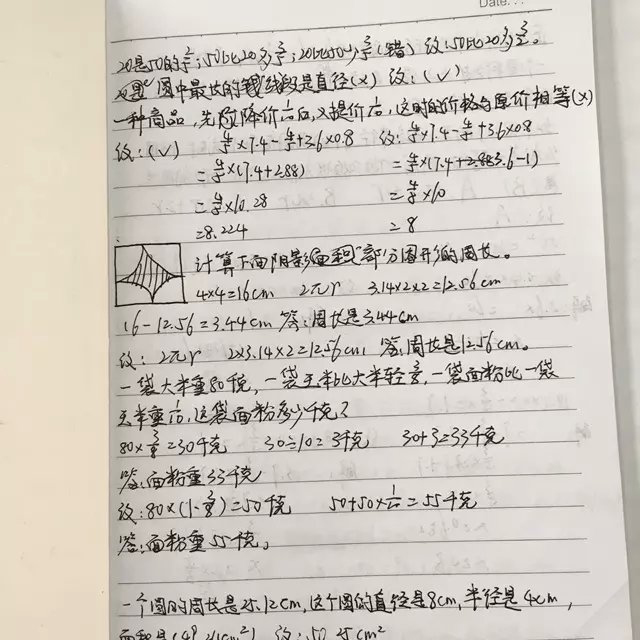 Date:
20是50的2/5;50比20多3/2;20比50少3/5(错) 改:50比20多3/2。
圆中最长的线段是直径(×) 改:(√)
一种商品,先降价1/10后,又提价1/10,这时的价格与原价相等(×)
改:(√) 4/5×7.4-4/5+3.6×0.8 改:4/5×7.4-4/5+3.6×0.8
=4/5×(7.4+2.88) =4/5×(7.4+3.6-1)
=4/5×10.28 =4/5×10
=8.224 =8
计算下面阴影部分图形的周长。
4×4=16cm 2πr 3.14×2×2=12.56cm
16-12.56=3.44cm 答:周长是3.44cm
改: 2πr 2×3.14×2=12.56cm 答:周长是12.56cm。
一袋大米重80千克,一袋玉米比大米轻3/8,一袋面粉比一袋
玉米重1/10,这袋面粉多少千克?
80×3/8=30千克 30÷10=3千克 30+3=33千克
答:面粉重33千克
改:80×(1-3/8)=50千克 50+50×1/10=55千克
答:面粉重55千克。
一个圆的周长是25.12cm,这个圆的直径是8cm,半径是4cm,
面积是 改:50.25cm²